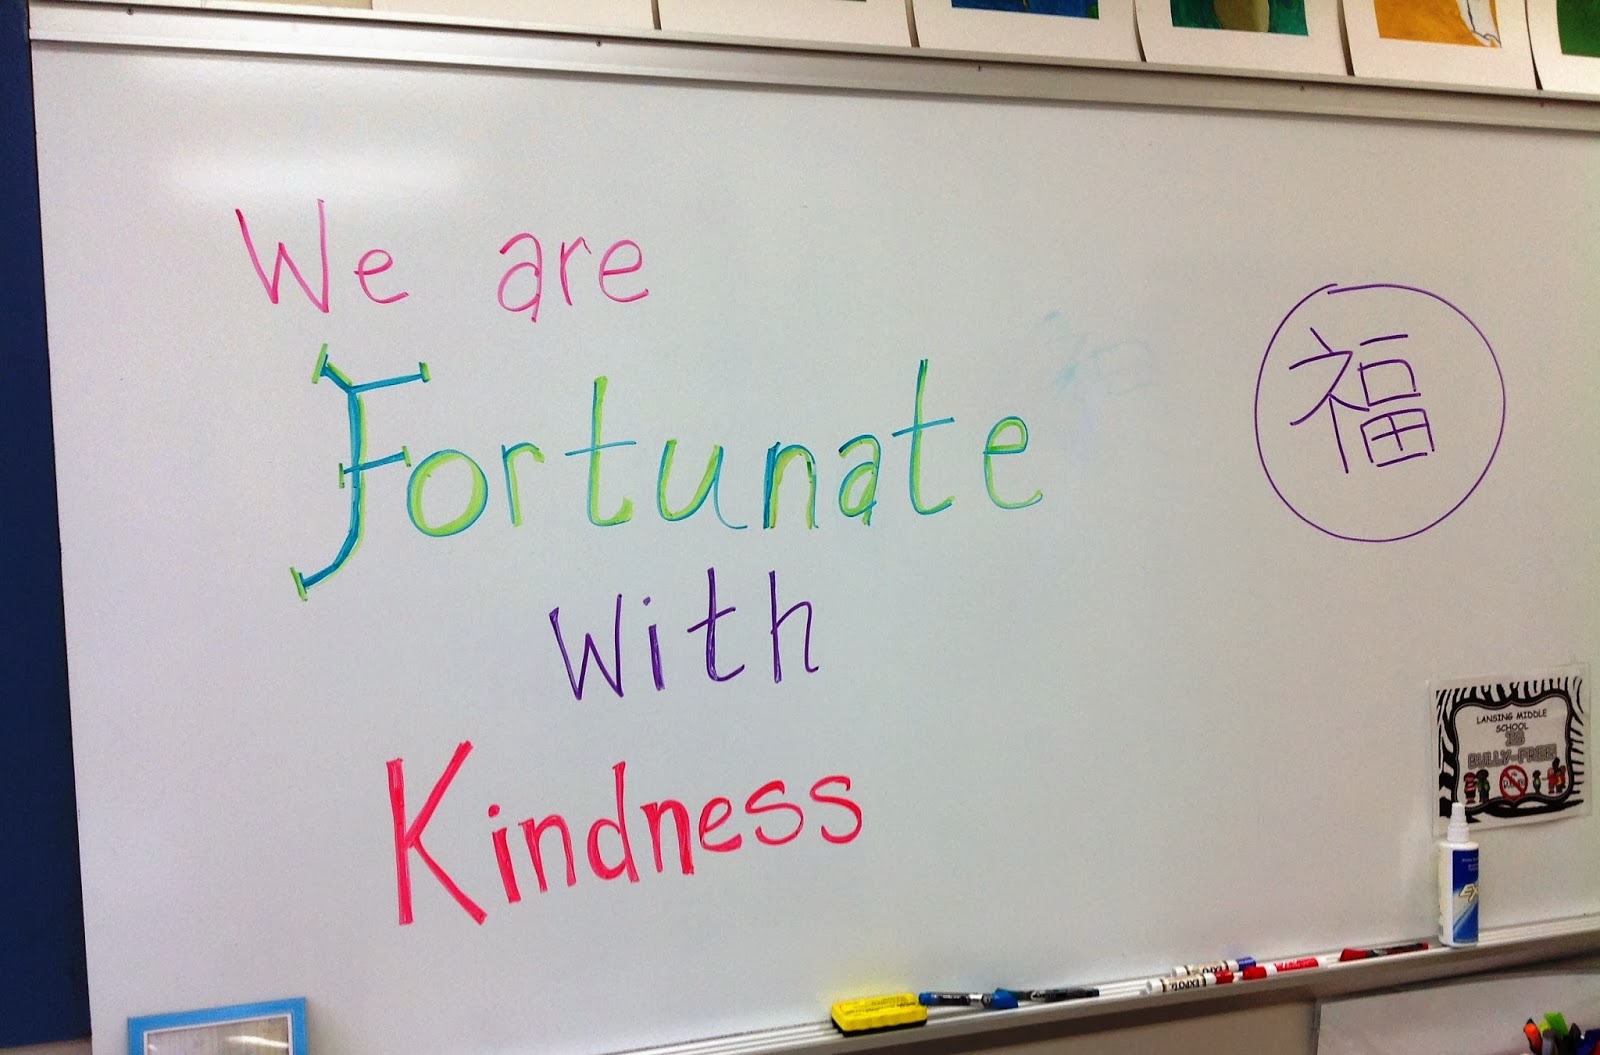 We are
Fortunate
With
Kindness
福
LANSING MIDDLE
SCHOOL
IS
BULLY-FREE!
EXPO